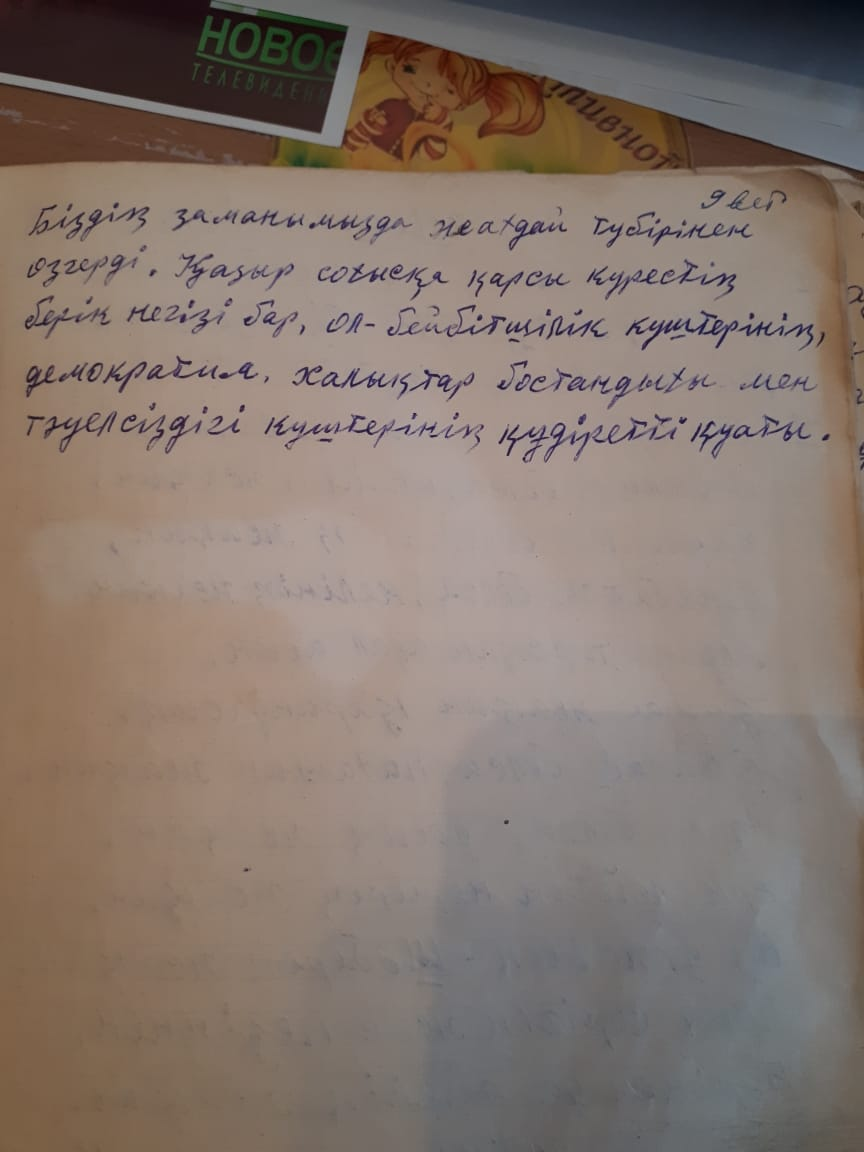 НОВОЕ
ТЕЛЕВИДЕНИ
тивной
9 бет
Біздің заманымызда жағдай түбірінен
өзгерді. Қазыр соғысқа қарсы күрестің
берік негізі бар, ол - бейбітшілік күштерінің,
демократия, халықтар бостандығы мен
тәуелсіздігі күштерінің құдіретті қуаты.